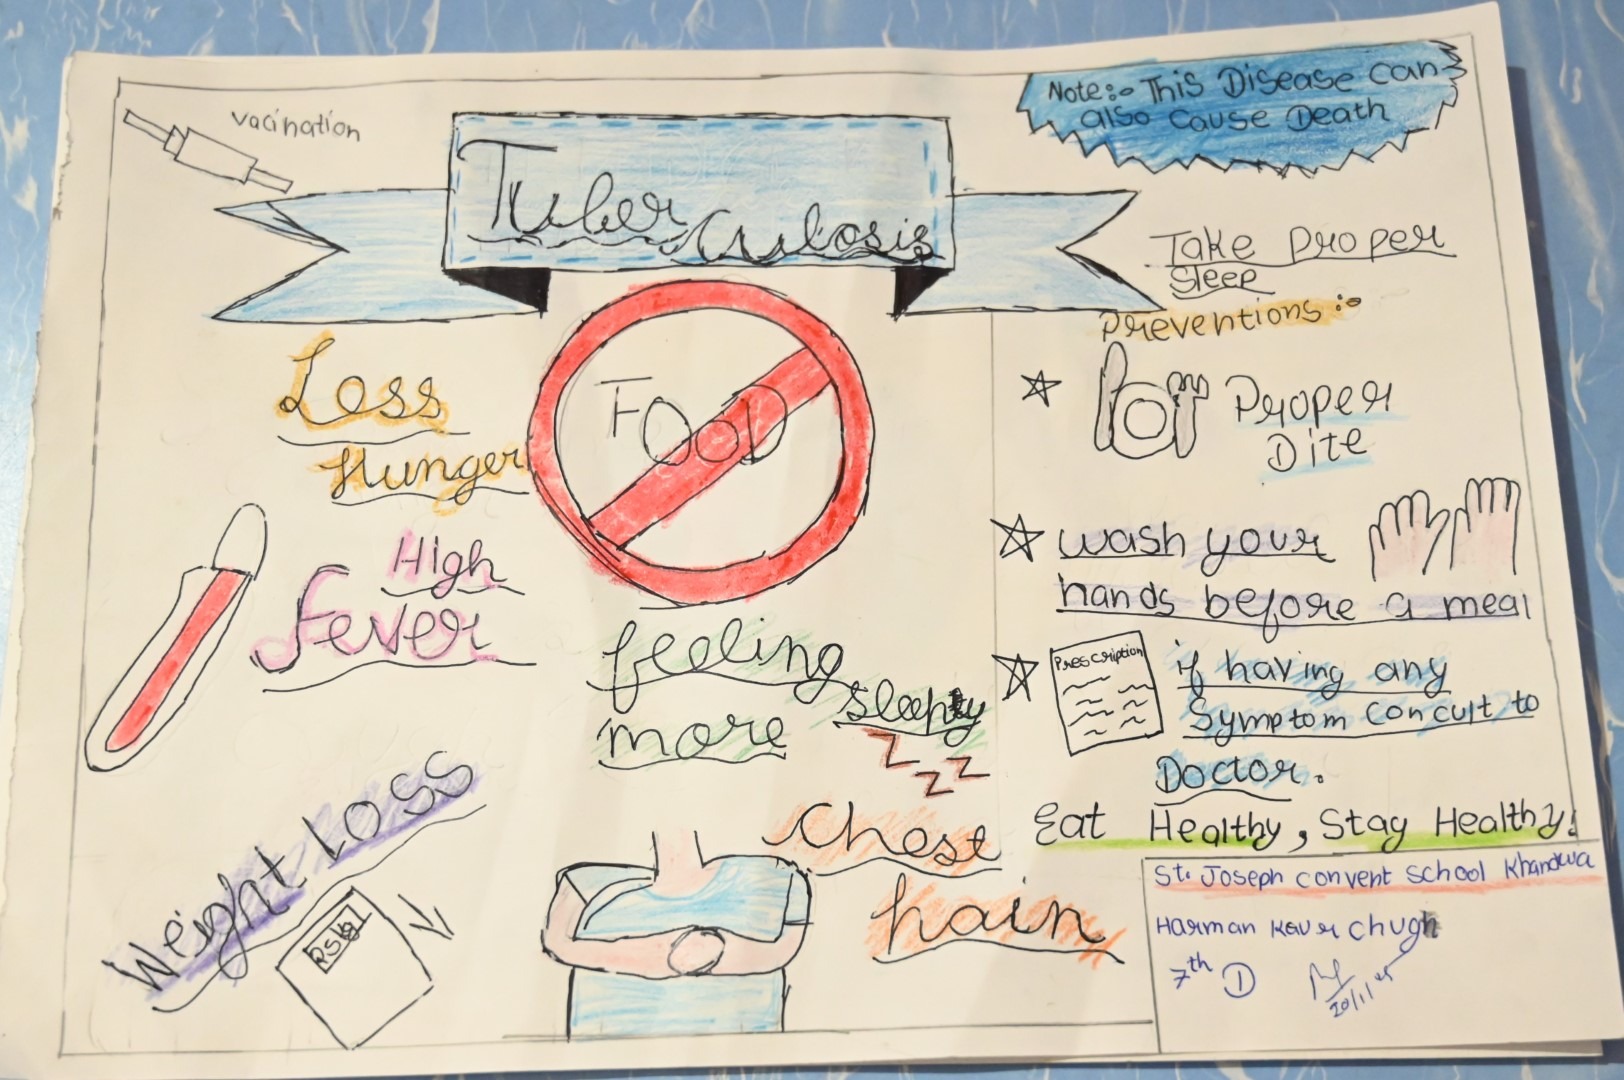 vacination
Tuber Culosis
Note:- This Disease Can
also Cause Death
Take Proper
Sleep
Preventions :-
Loss
Hunger
FOOD
Proper
Dite
High
Fever
wash your
hands before a meal
feeling
more Sleepy
z z z
Prescription
if having any
Symptom Concult to
Doctor.
Weight Loss
Chest
Pain
Eat Healthy, Stay Healthy!
St. Joseph Convent School Khandwa
Harman Kaur Chugh
7th D